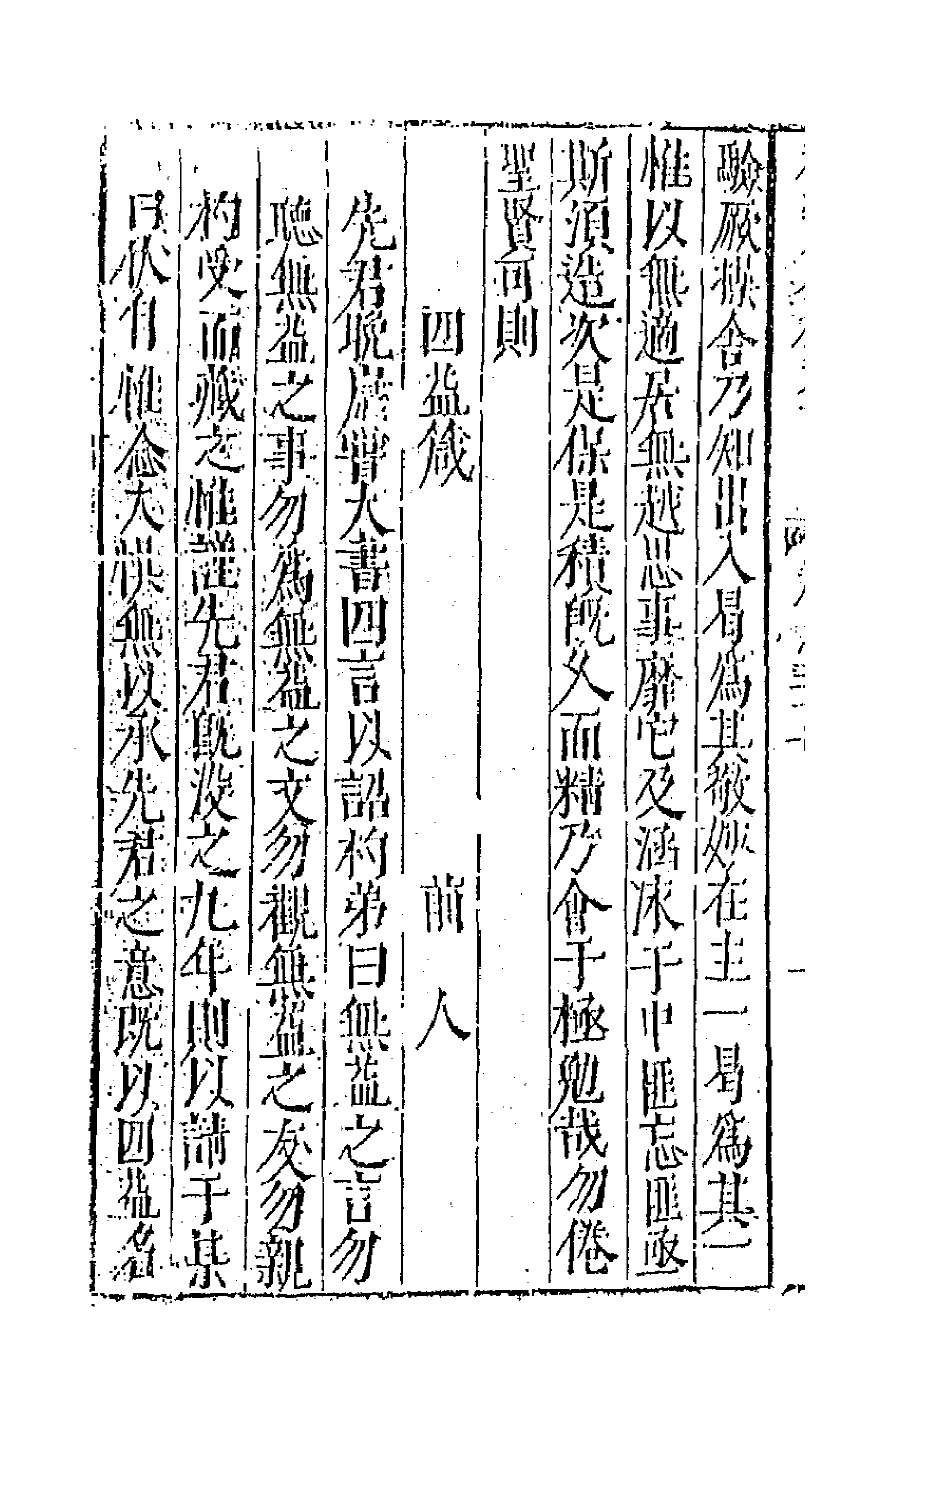 驗厥疾舍乃知出入曷為其敬妙在主一曷為其一
惟以無適居無越思事靡它及涵泳于中匪忘匪亟
斯須造次是保是積旣久而精乃會于極勉哉勿倦
聖賢可則
四益箴 前人
先君晩歳嘗大書四言以詔杓弟曰無益之言勿
聽無益之事勿為無益之文勿觀無益之友勿親
杓受而藏之惟謹先君旣沒之九年則以請于某
曰伏自惟念大懼無以承先君之意旣以四益名